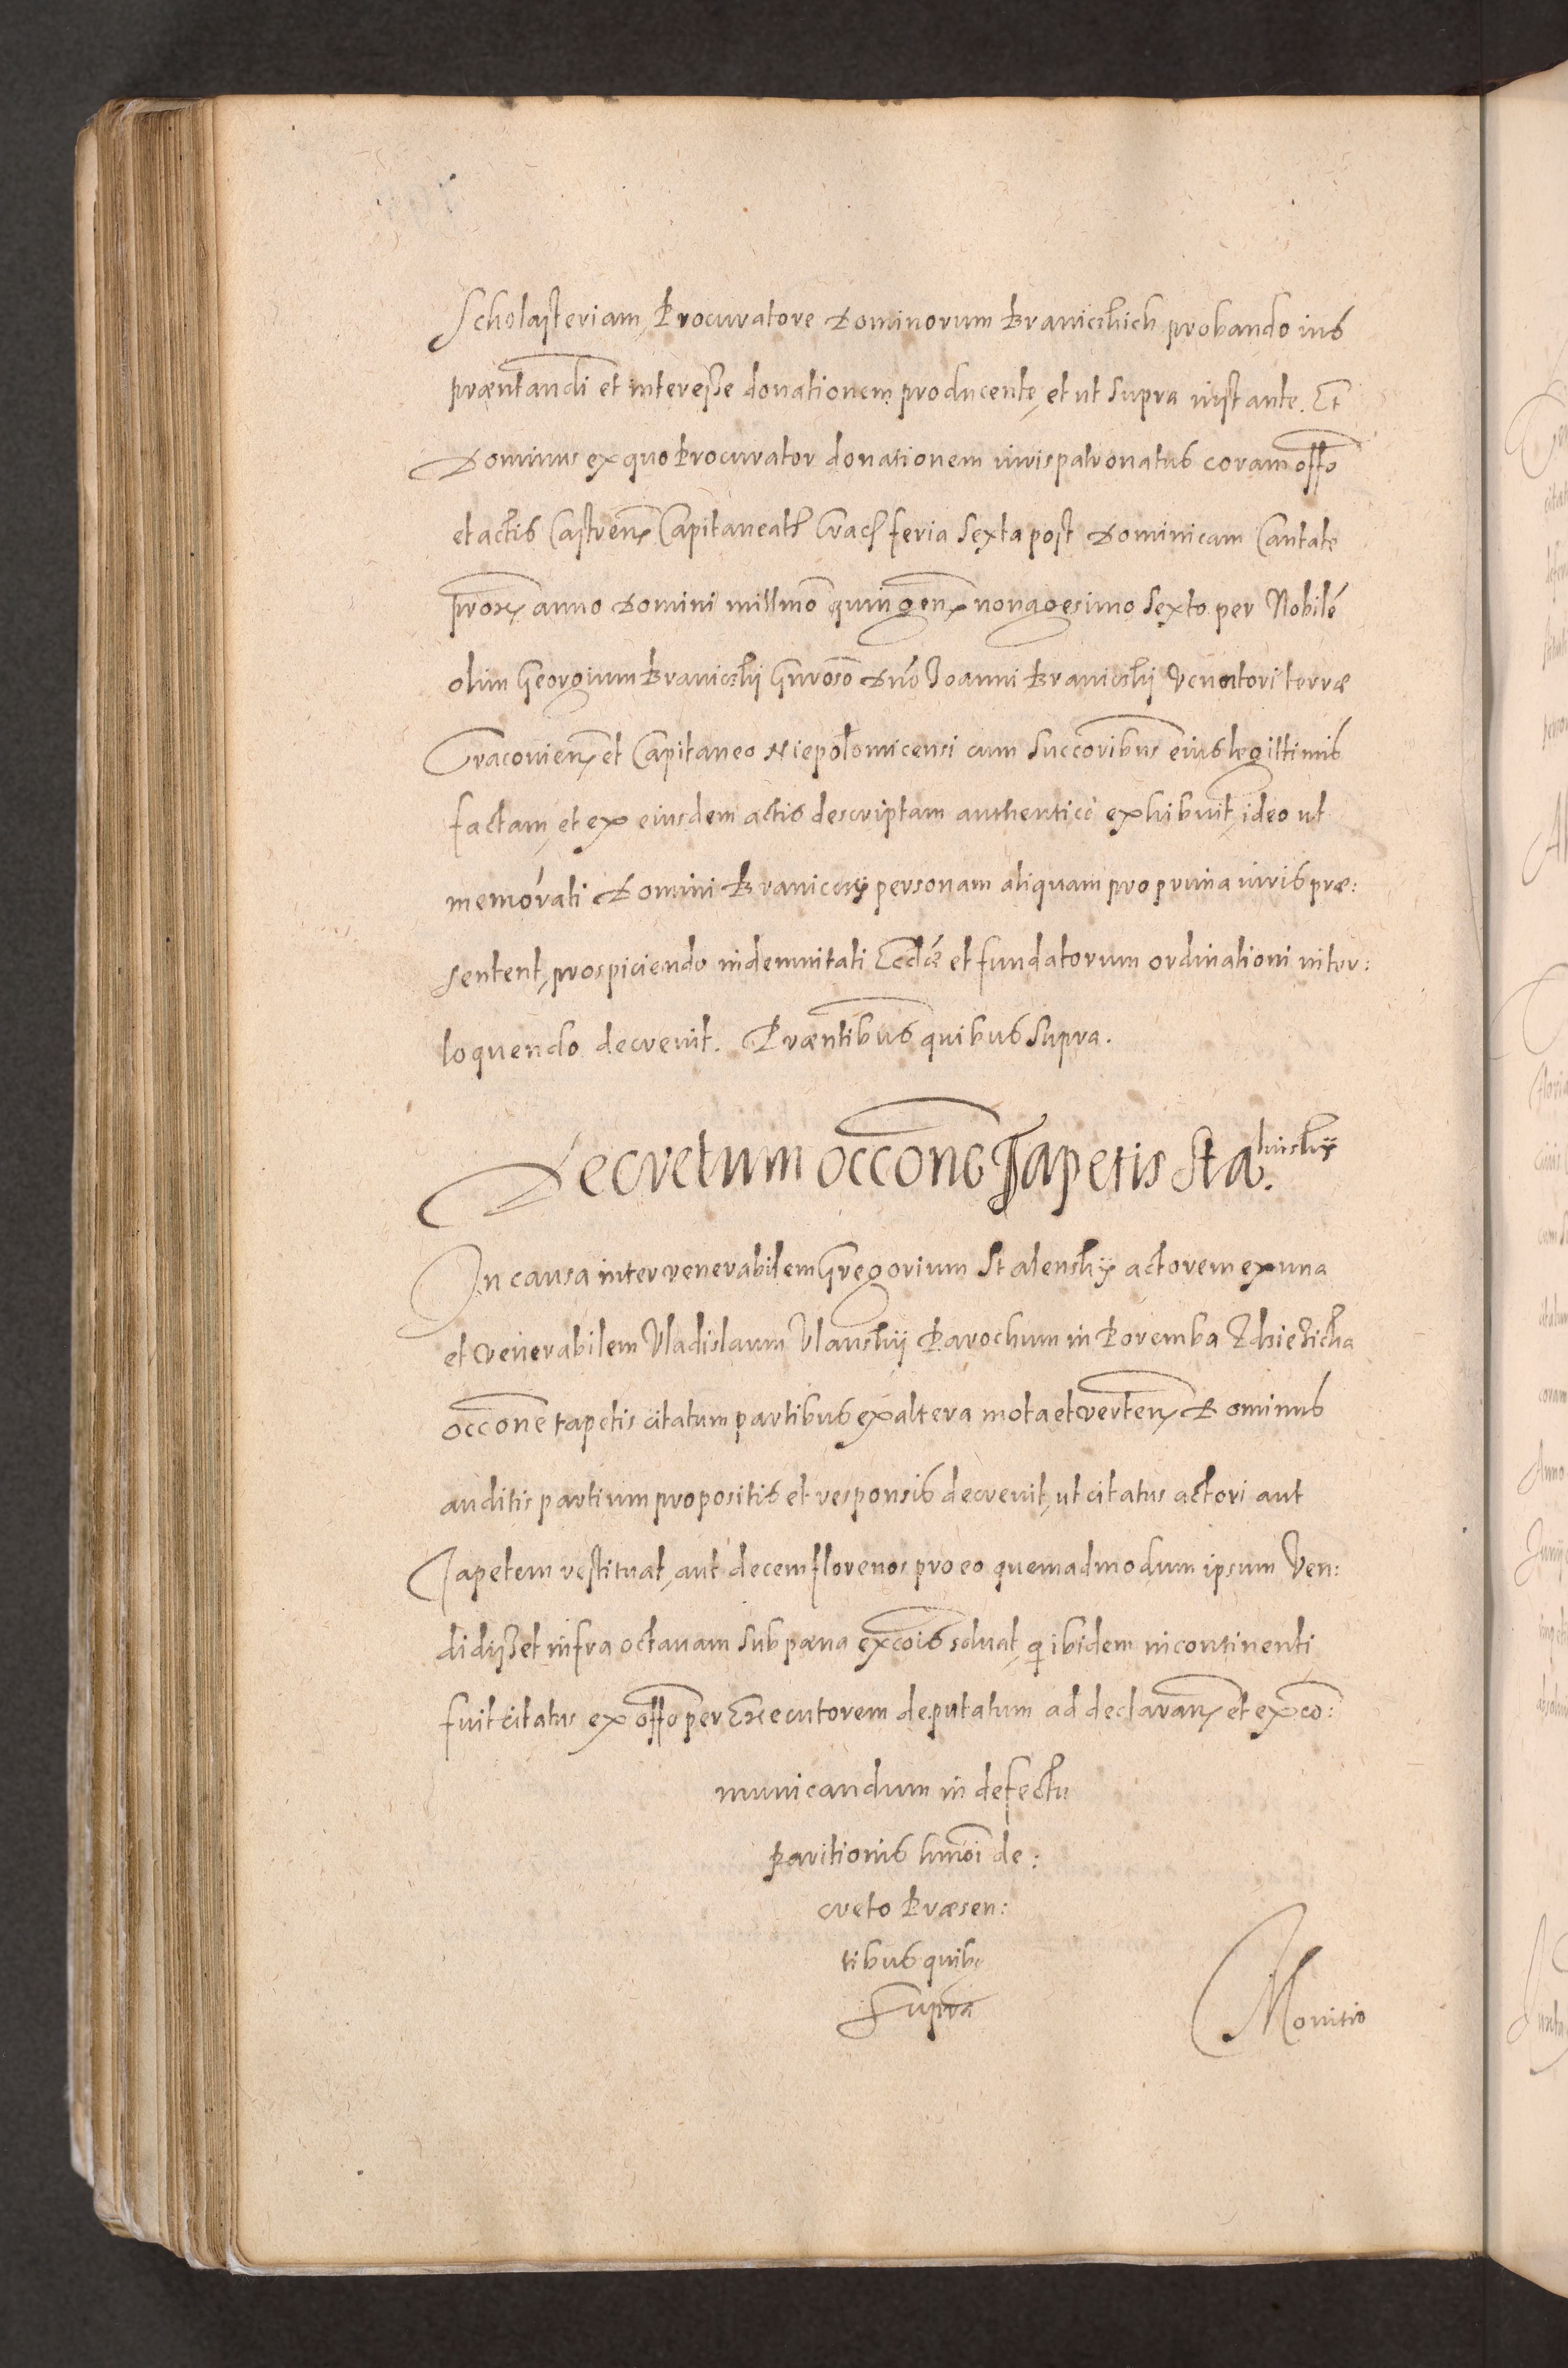 Scholasteriam, Procuratore Dominorum Braniczkich probando ius
præntandi et interesse donationem producente, et ut supra instante. Et
Dominus ex quo Procurator donationem iuris patronatus coram offo
et actis Castren Capitaneat Crac feria Sexta post Dominicam Cantate
prox anno Domini millmo quingen nonagesimo Sexto per Nobilé
olim Georgium Braniczkij Gnroso Dno Joanni Braniczkij Venatori terræ
Cracovien et Capitaneo Niepolomicensi cum Succoribus eius legittimis
factam, et ex eiusdem actis descriptam authenticè exhibuit, ideo ut
memorati Domini Braniczcij personam aliquam pro prima iuris præ:
sentent, prospiciendo indemnitati Ecclæ et fundatorum ordinationi inter:
loquendo decrevit. Præntibus quibus Supra.
Decretum occone Tapetis Sta.
In causa inter venerabilem Gregorium Stalenskij actorem ex una
et venerabilem Vladislaum Vlanskij Parochum in Poremba
occone tapetis citatum partibus ex altera mota et verten Dominus
auditis partium propositis et responsis decrevit, ut citatus actori aut
Tapetem restituat, aut decem florenos pro eo quemadmodum ipsum Ven:
didisset infra octavam Sub pæna excois solvat, q ibidem incontinenti
fuit citatus ex offo per Executorem deputatum ad declaran et exco:
municandum in defectu
paritionis hmoi de:
creto Præsen:
tibus quib
Supra
Monitio